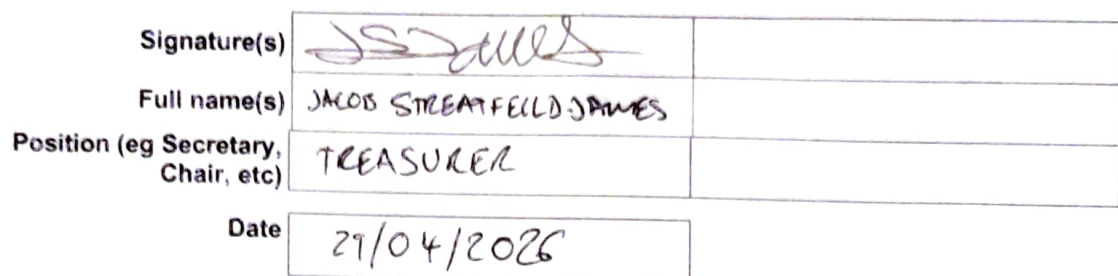 Signature(s) JSJames
Full name(s) JACOB STREATFEILD-JAMES
Position (eg Secretary,
Chair, etc) TREASURER
Date 29/04/2026